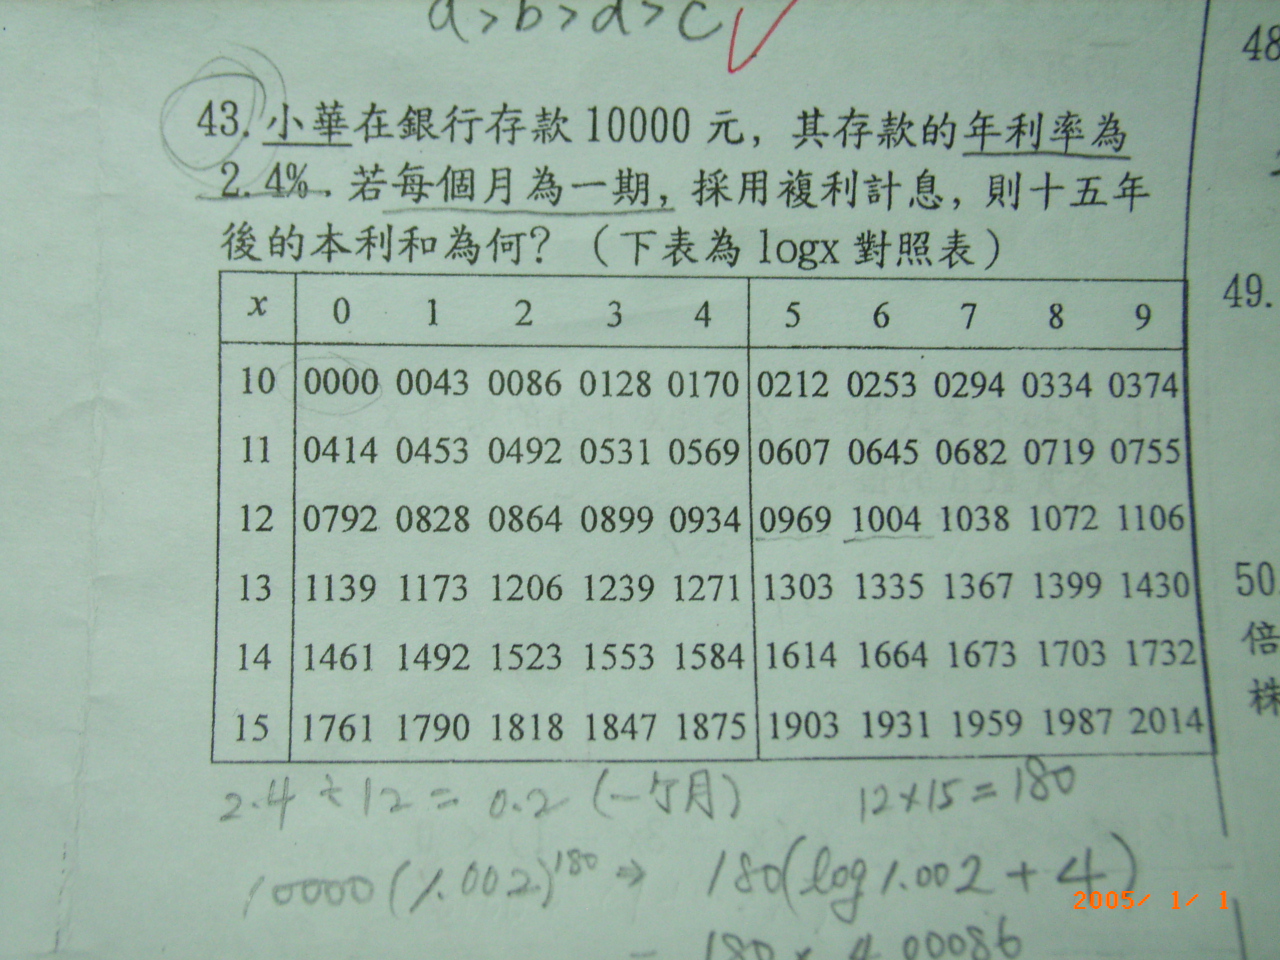 a>b>d>c
43. 小華在銀行存款10000元，其存款的年利率為
2.4%．若每個月為一期，採用複利計息，則十五年
後的本利和為何？（下表為 logx 對照表）
x 0 1 2 3 4 5 6 7 8 9
10 0000 0043 0086 0128 0170 0212 0253 0294 0334 0374
11 0414 0453 0492 0531 0569 0607 0645 0682 0719 0755
12 0792 0828 0864 0899 0934 0969 1004 1038 1072 1106
13 1139 1173 1206 1239 1271 1303 1335 1367 1399 1430
14 1461 1492 1523 1553 1584 1614 1664 1673 1703 1732
15 1761 1790 1818 1847 1875 1903 1931 1959 1987 2014
2.4÷12=0.2 (一ケ月) 12×15=180
10000(1.002)^180 ⇒ 180(log1.002+4)
= 180×4.00086
48
49.
50.
倍
株
2005/ 1/ 1